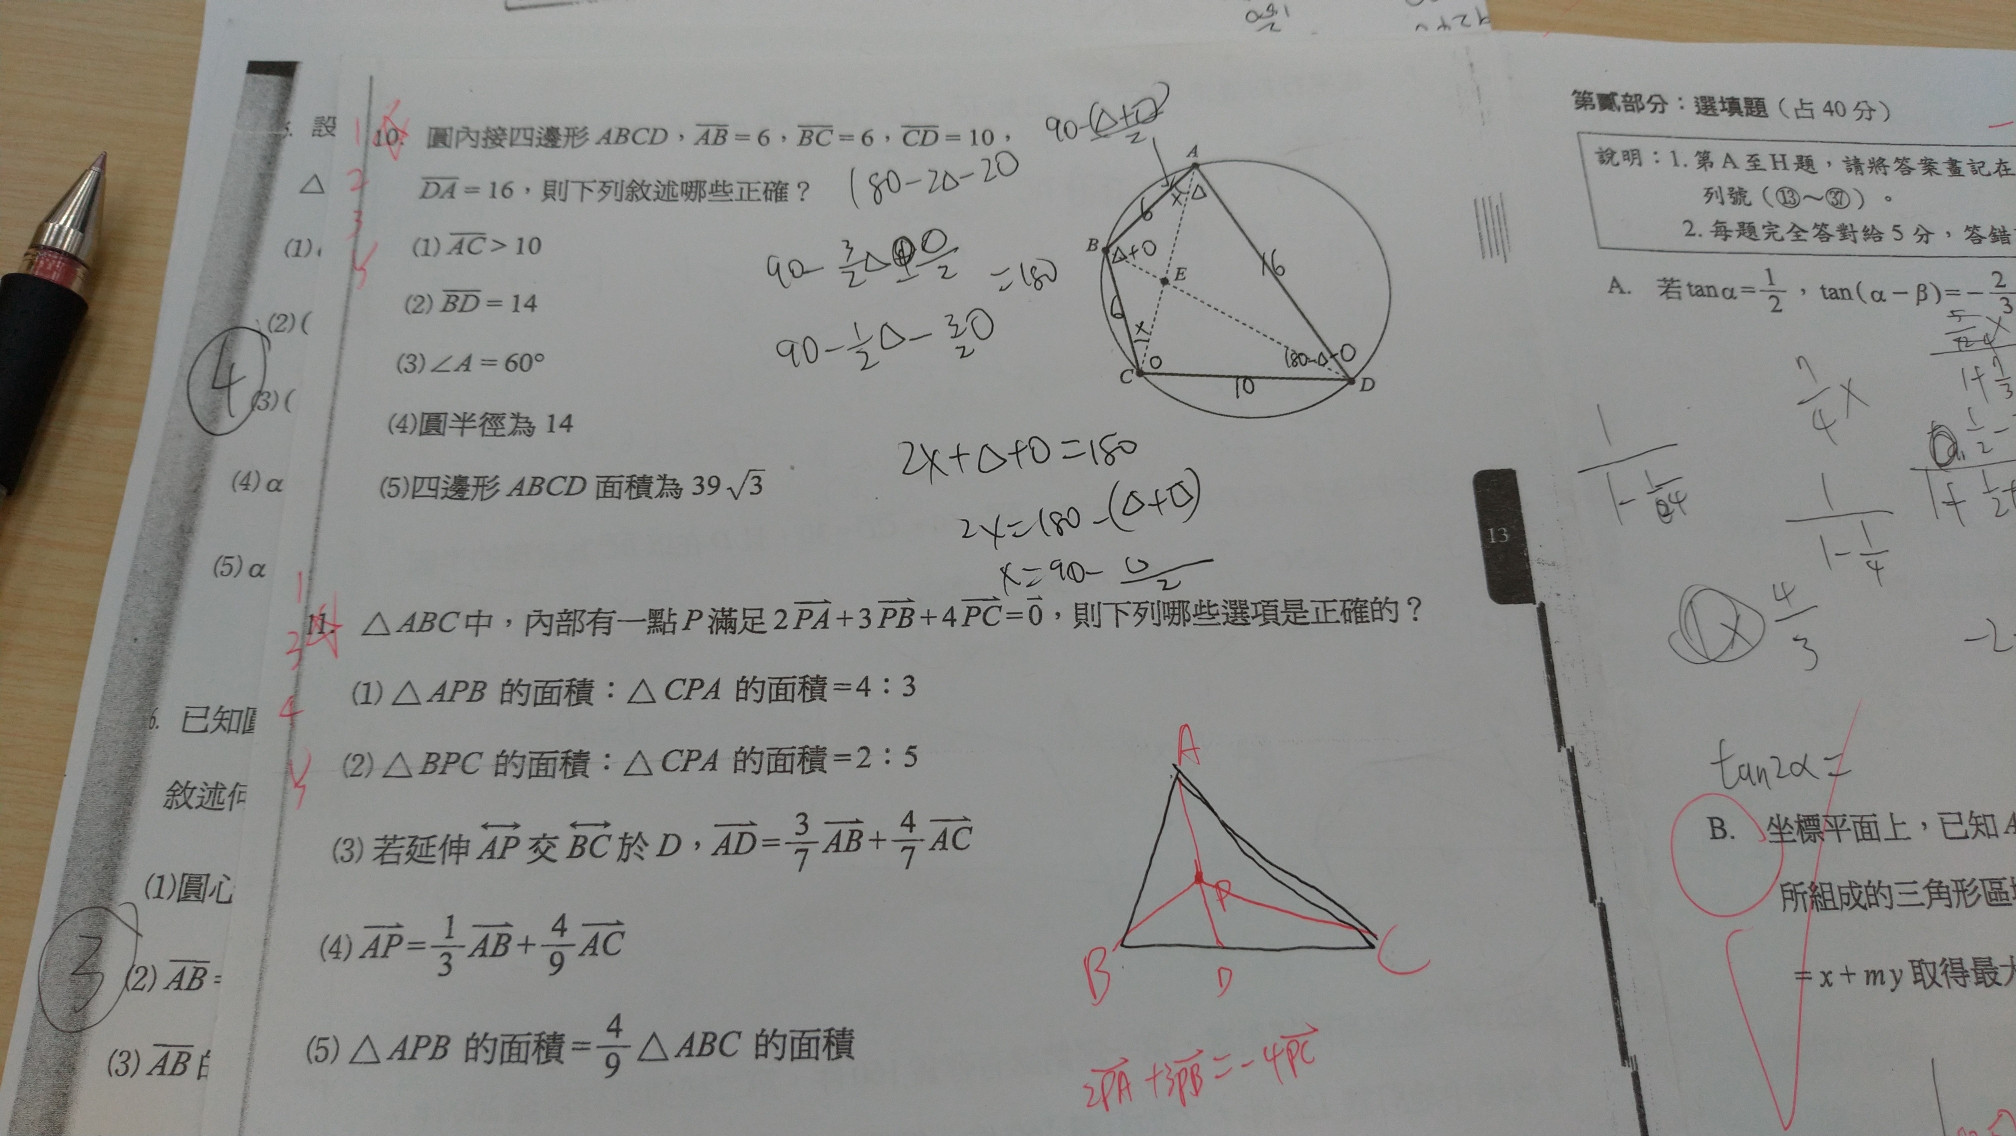 設
△
(1)
(2)(
4
(3)(
(4) α
(5) α
6. 已知圓
敘述何
(1)圓心
3
(2) \overline{AB} =
(3) \overline{AB} 的
1
2
3
5
10. 圓內接四邊形 ABCD，\overline{AB} = 6，\overline{BC} = 6，\overline{CD} = 10，
\overline{DA} = 16，則下列敘述哪些正確？
(1) \overline{AC} > 10
(2) \overline{BD} = 14
(3) ∠A = 60°
(4)圓半徑為 14
(5)四邊形 ABCD 面積為 39√3
90-(△+O)/2
180-2△-2O
= 180
90-\frac{1}{2}△-\frac{3}{2}O
A
x △
6
B △+O
E
16
6
x
C O
10
180-△-O
D
2x+△+O=180
2x=180-(△+O)
x=90-
1
3
4
5
11. △ABC中，內部有一點P滿足 2\overrightarrow{PA}+3\overrightarrow{PB}+4\overrightarrow{PC}=\overrightarrow{0}，則下列哪些選項是正確的？
(1) △APB 的面積：△CPA 的面積=4：3
(2) △BPC 的面積：△CPA 的面積=2：5
(3) 若延伸 \overleftrightarrow{AP} 交 \overleftrightarrow{BC} 於 D，\overrightarrow{AD}=\frac{3}{7}\overrightarrow{AB}+\frac{4}{7}\overrightarrow{AC}
(4) \overrightarrow{AP}=\frac{1}{3}\overrightarrow{AB}+\frac{4}{9}\overrightarrow{AC}
(5) △APB 的面積=\frac{4}{9}△ABC 的面積
A
P
B
D
C
2\overrightarrow{PA}+3\overrightarrow{PB}=-4\overrightarrow{PC}
13
第貳部分：選填題（占 40 分）
說明：1. 第 A 至 H 題，請將答案畫記在
列號（⑬～㊲）。
2. 每題完全答對給 5 分，答錯
A. 若 tanα=\frac{1}{2}，tan(α－β)=-\frac{2}{3}
\frac{7}{4}x
\frac{1}{1-\frac{1}{4}}
\frac{4}{3}
-2
tan2α=
B. 坐標平面上，已知 A
所組成的三角形區域
=x+my 取得最大